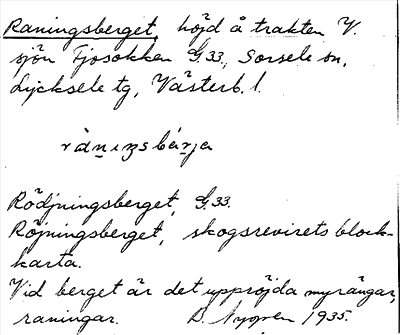 Raningsberget, höjd å trakten V.
sjön Tjosokken G.33, Sorsele sn,
Lycksele tg, Västerb. l.
rȧṉıŋsbárja
Rödjningsberget, G.33.
Röjningsberget, skogsrevirets block-
karta.
Vid berget är det uppröjda myrängar,
raningar. D. Nygren 1935.